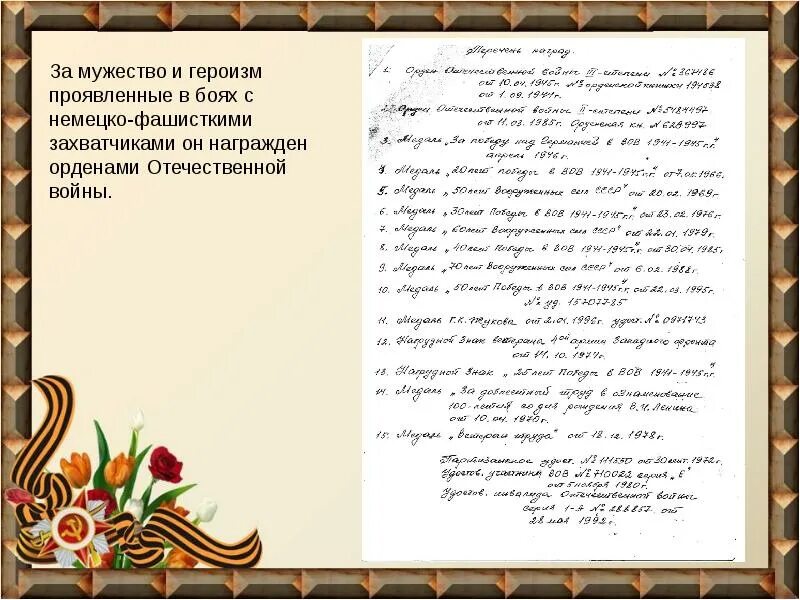 За мужество и героизм
проявленные в боях с
немецко-фашисткими
захватчиками он награжден
орденами Отечественной
войны.
Перечень наград.
1. Орден Отечественной войны III-степени № 367486
от 10.04.1945г. № орденской книжки 194598
от 1.09.1947г.
2. Орден Отечественной войны II-степени № 5184497
от 11.03.1985г. Орденская кн. № 629997
3. Медаль „За победу над Германией в ВОВ 1941-1945г.г."
апрель 1946г.
4. Медаль „20 лет победы в ВОВ 1941-1945г.г." от 7.05.1966.
5. Медаль „50 лет Вооруженных сил СССР" от 20.02.1969г.
6. Медаль „30 лет Победы в ВОВ 1941-1945г.г." от 23.02.1976г.
7. Медаль „60 лет Вооруженных сил СССР" от 22.01.1979г.
8. Медаль „40 лет Победы в ВОВ 1941-1945г.г." от 30.04.1985г
9. Медаль „70 лет Вооруженных сил СССР" от 6.02.1988г.
10. Медаль „50 лет Победы в ВОВ 1941-1945г.г. от 22.03.1995г.
№ уд. 15707785
11. Медаль Г.К. Жукова от 2.01.1996г. удост. № 0971743
12. Нагрудной знак ветерана 4ой армии Западного фронта
от 11.10.1974г.
13. Нагрудной знак „25 лет Победы в ВОВ 1941-1945г.г.
14. Медаль „За доблестный труд в ознаменование
100-летия со дня рождения В.И. Ленина
от 10.04.1970г.
15. Медаль „Ветеран труда" от 18.12.1978г.
Партизанское удост. № 111550 от 30 1972г.
Удостов. участника ВОВ № 710022 серия „Е"
от 5 ноября 1980г.
Удостов. инвалида Отечественной войны
серия 1-А № 288857 от
28 мая 1992г.